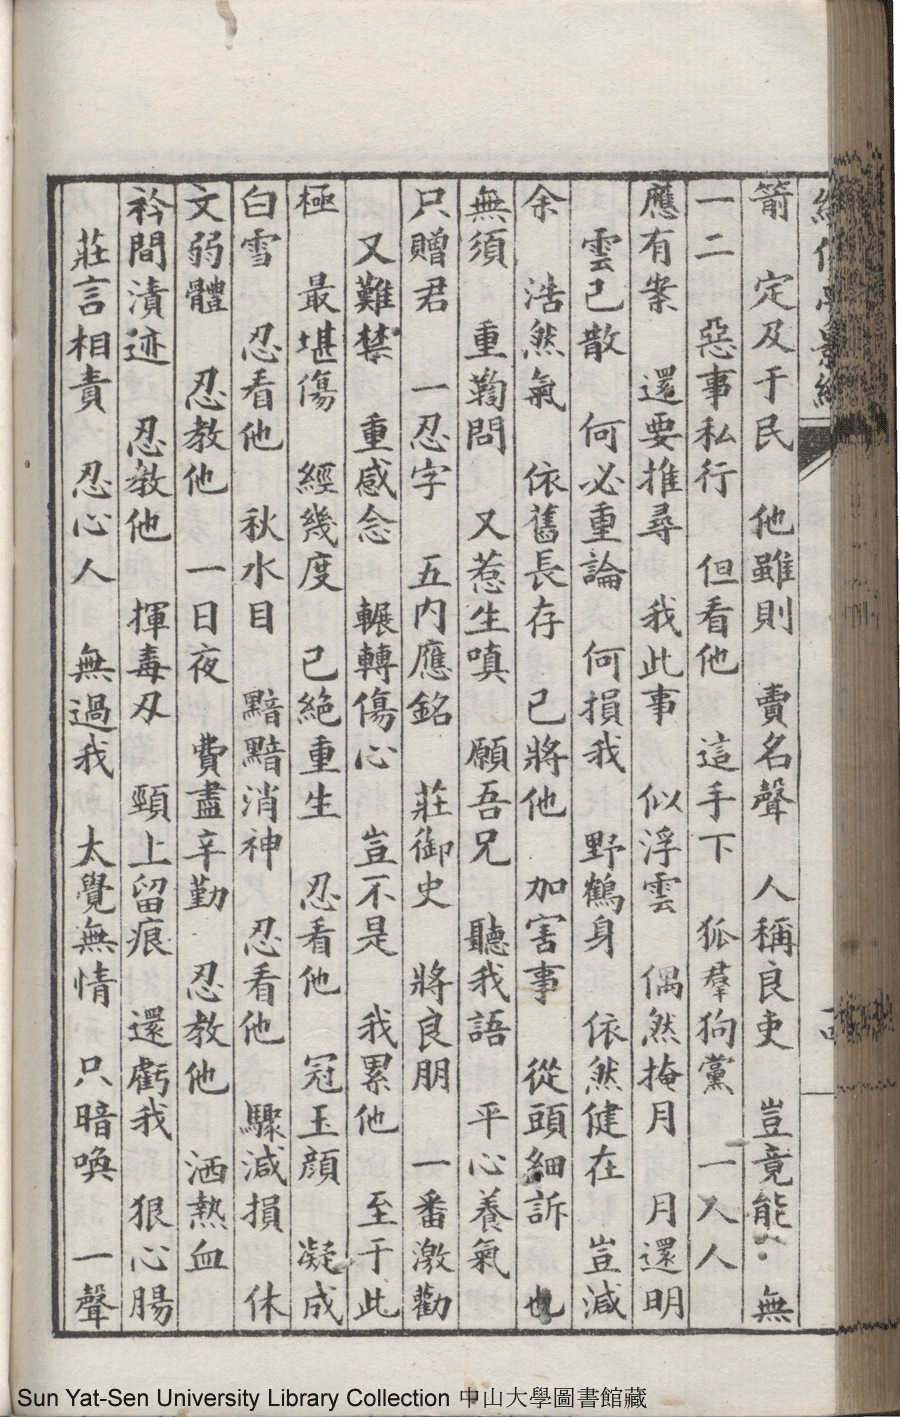 箭　定及于民　他雖則　賣名聲　人稱良吏　豈竟能　無
一二　惡事私行　但看他　這手下　狐羣狗黨　一人人
應有案　還要推尋　我此事　似浮雲　偶然掩月　月還明
雲已散　何必重論　何損我　野鶴身　依然健在　豈減
余　浩然氣　依舊長存　已將他　加害事　從頭細訴　也
無須　重鞫問　又惹生嗔　願吾兄　聽我語　平心養氣
只贈君　一忍字　五内應銘　莊御史　將良朋　一番激勸
又難禁　重感念　輾轉傷心　豈不是　我累他　至于此
極　最堪傷　經幾度　已絕重生　忍看他　冠玉顏　凝成
白雪　忍看他　秋水目　黯黯消神　忍看他　驟減損　休
文弱體　忍教他　一日夜　費盡辛勤　忍教他　洒熱血
衿間漬迹　忍教他　揮毒刄　頸上留痕　還虧我　狠心腸
莊言相責　忍心人　無過我　太覺無情　只暗喚　一聲
Sun Yat-Sen University Library Collection 中山大學圖書館藏